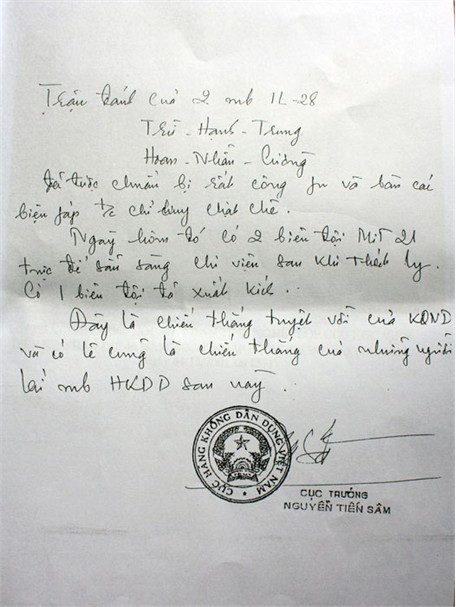 Trận đánh của 2 mb IL-28
Trừ - Hạnh - Trung
Hoan - Nhân - Cường
Đã được chuẩn bị rất công fu và bàn các
biện fáp t/c chỉ đúng chặt chẽ.
Ngày hôm đó có 2 biên đội MiG 21
trực để sẵn sàng chi viện sau khi thoát ly.
Có 1 biên đội đã xuất kích.
Đây là chiến thắng tuyệt vời của KQND
và có lẽ cũng là chiến thắng của những người
lái mb HKDD sau này.
CỤC HÀNG KHÔNG DÂN DỤNG VIỆT NAM
CỤC TRƯỞNG
NGUYỄN TIẾN SÂM